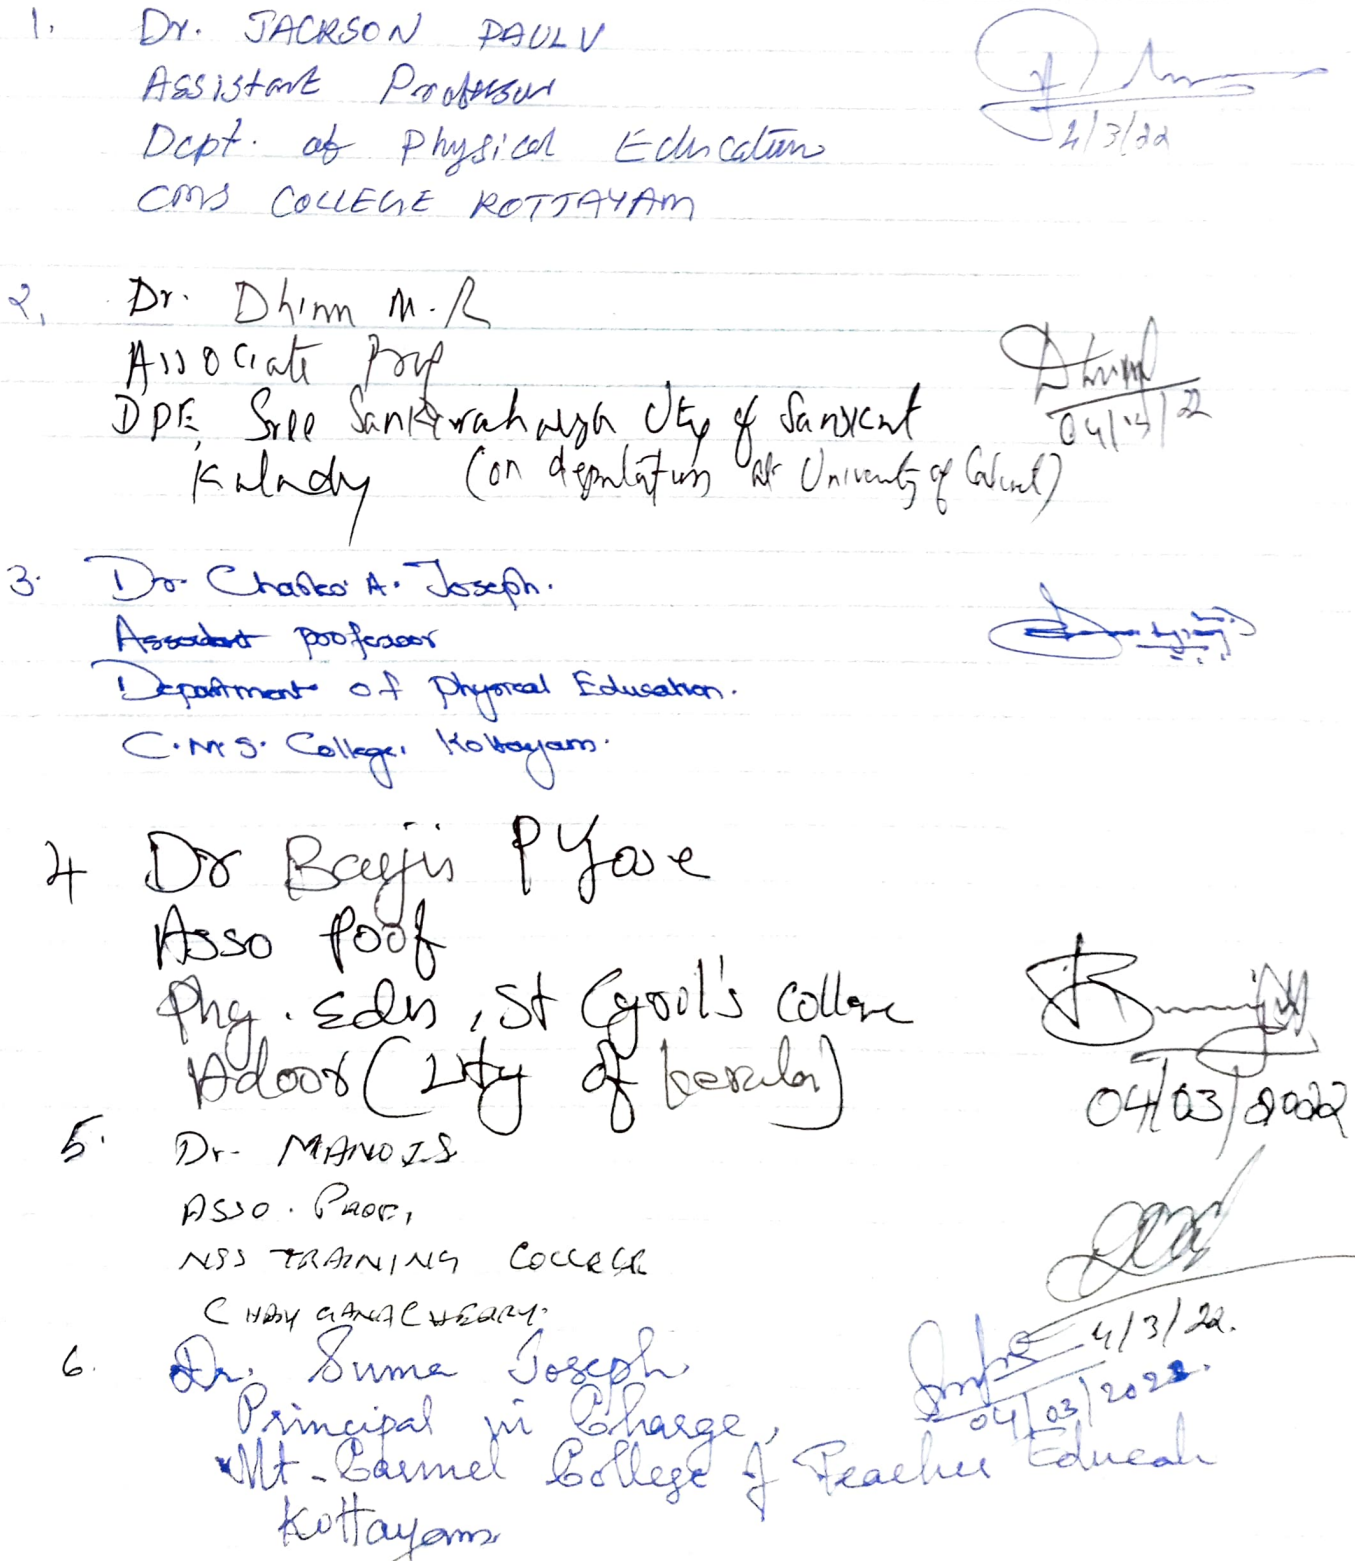 1. Dr. JACKSON PAUL V
Assistant Professor
Dept. of Physical Education
CMS COLLEGE KOTTAYAM
4/3/22
2. Dr. Dhinn M.R
Associate Prof
DPE, Sree Uty of Sanskrit
Kalady (on deputation at University of Calicut)
04/3/22
3. Dr Chacko A. Joseph.
Assistant professor
Department of physical Education.
C.M.S. College, Kottayam.
4 Dr P Yose
Asso Prof
Phy. Edn, St Cyril's College
Adoor (Uty of Kerala)
04/03/2022
5. Dr. MANOJ S
ASSO. PROF,
NSS TRAINING COLLEGE
CHANGANACHERRY.
4/3/22.
6. Dr. Suma Joseph
Principal in Charge,
04/03/2022.
Mt. Carmel College of Teacher Educati
Kottayam